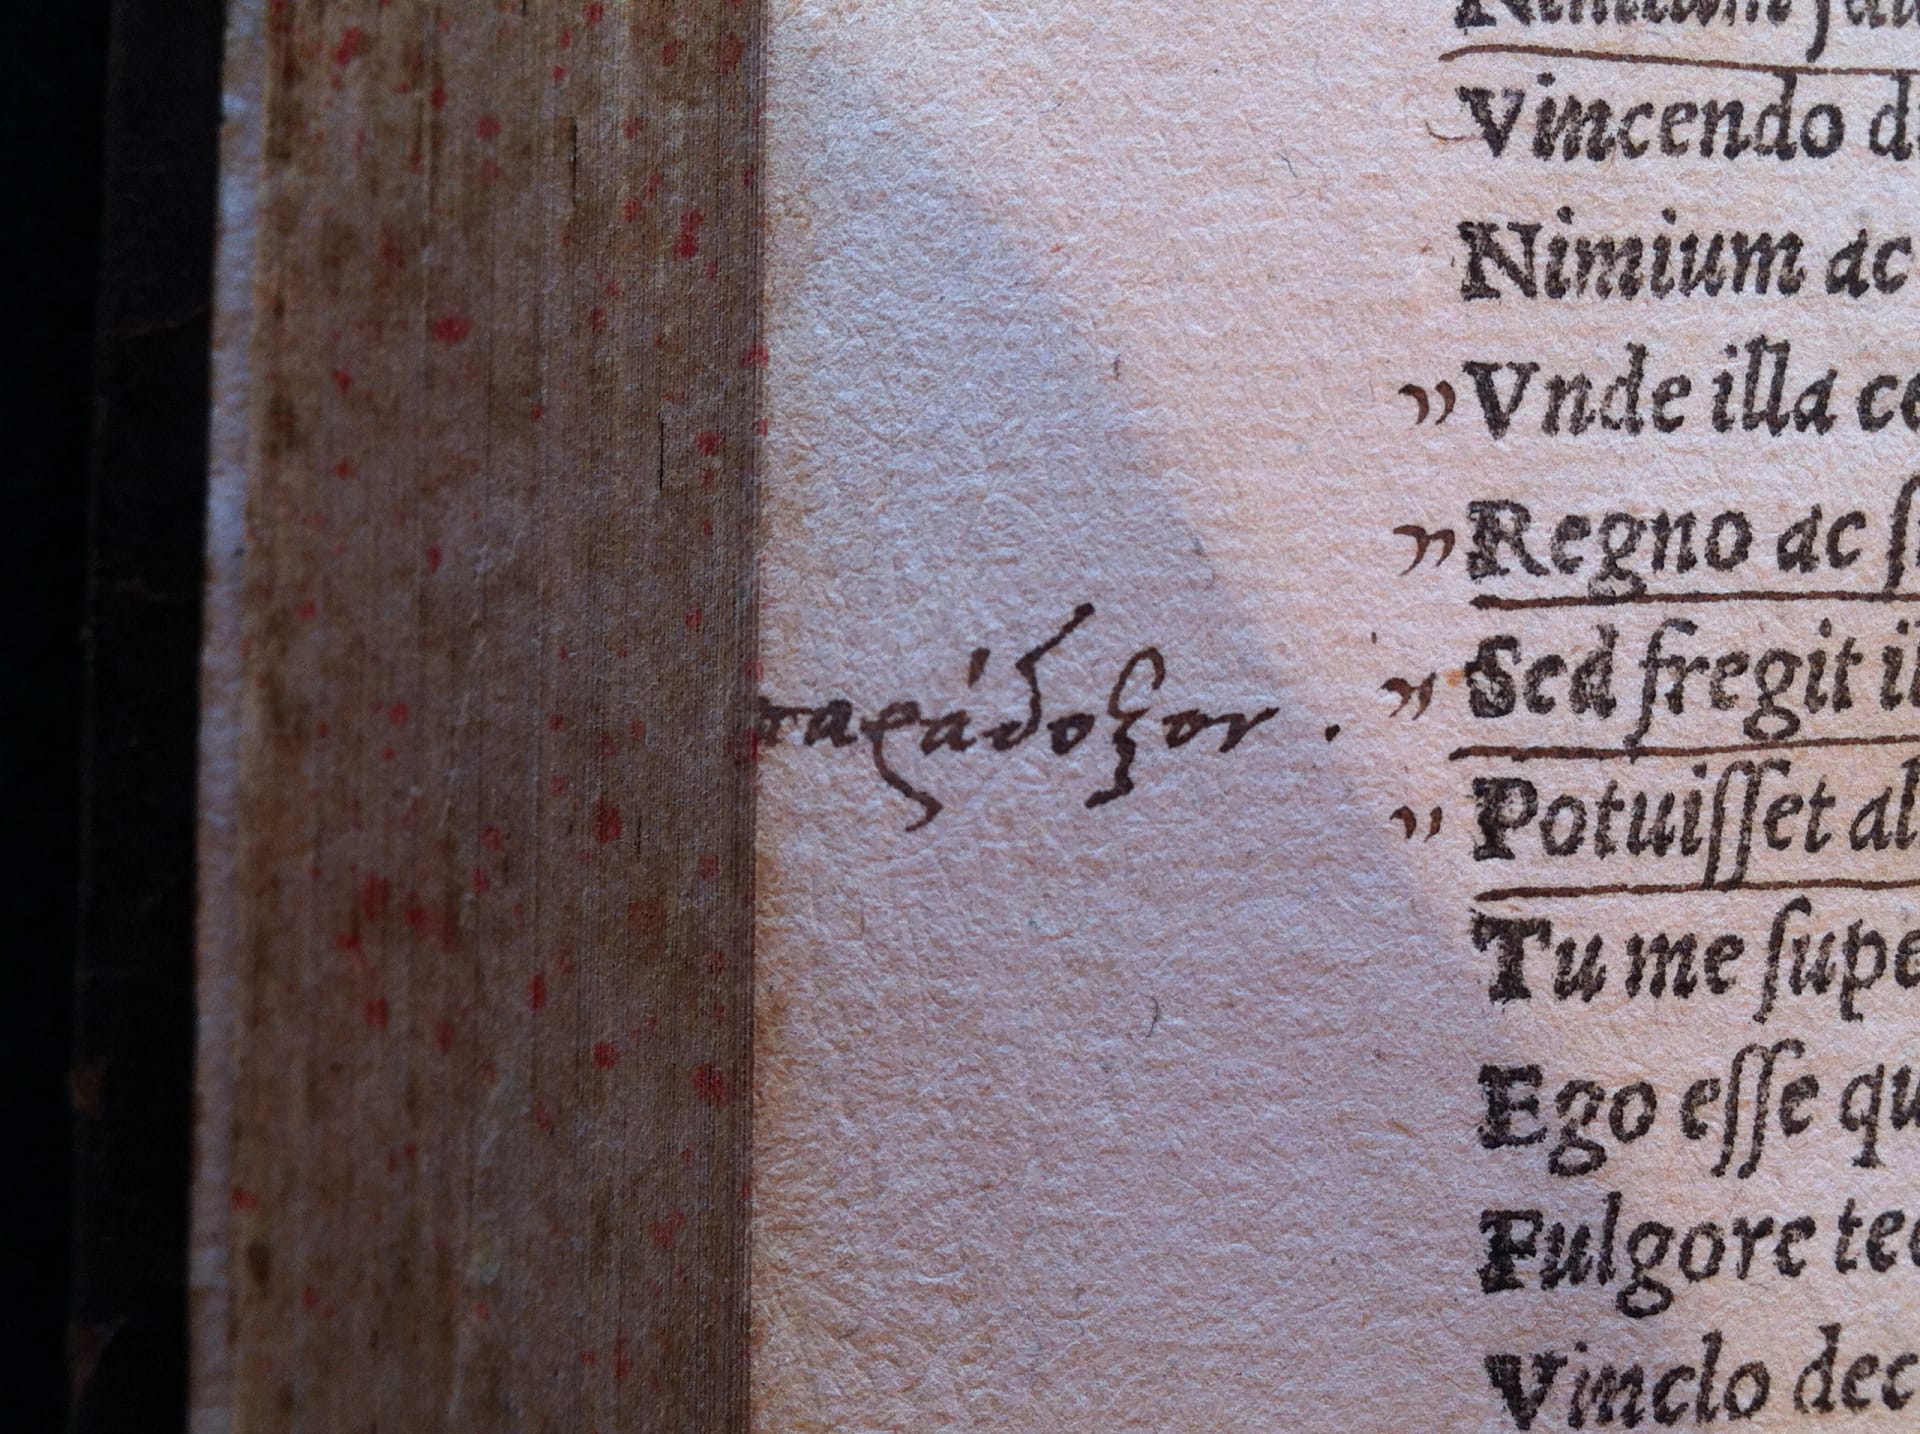 Vincendo
Nimium ac
„ Vnde illa
„ Regno ac
παράδοξον . „ Sed fregit
„ Potuiſſet
Tu me
Ego eſſe
Fulgore
Vinclo